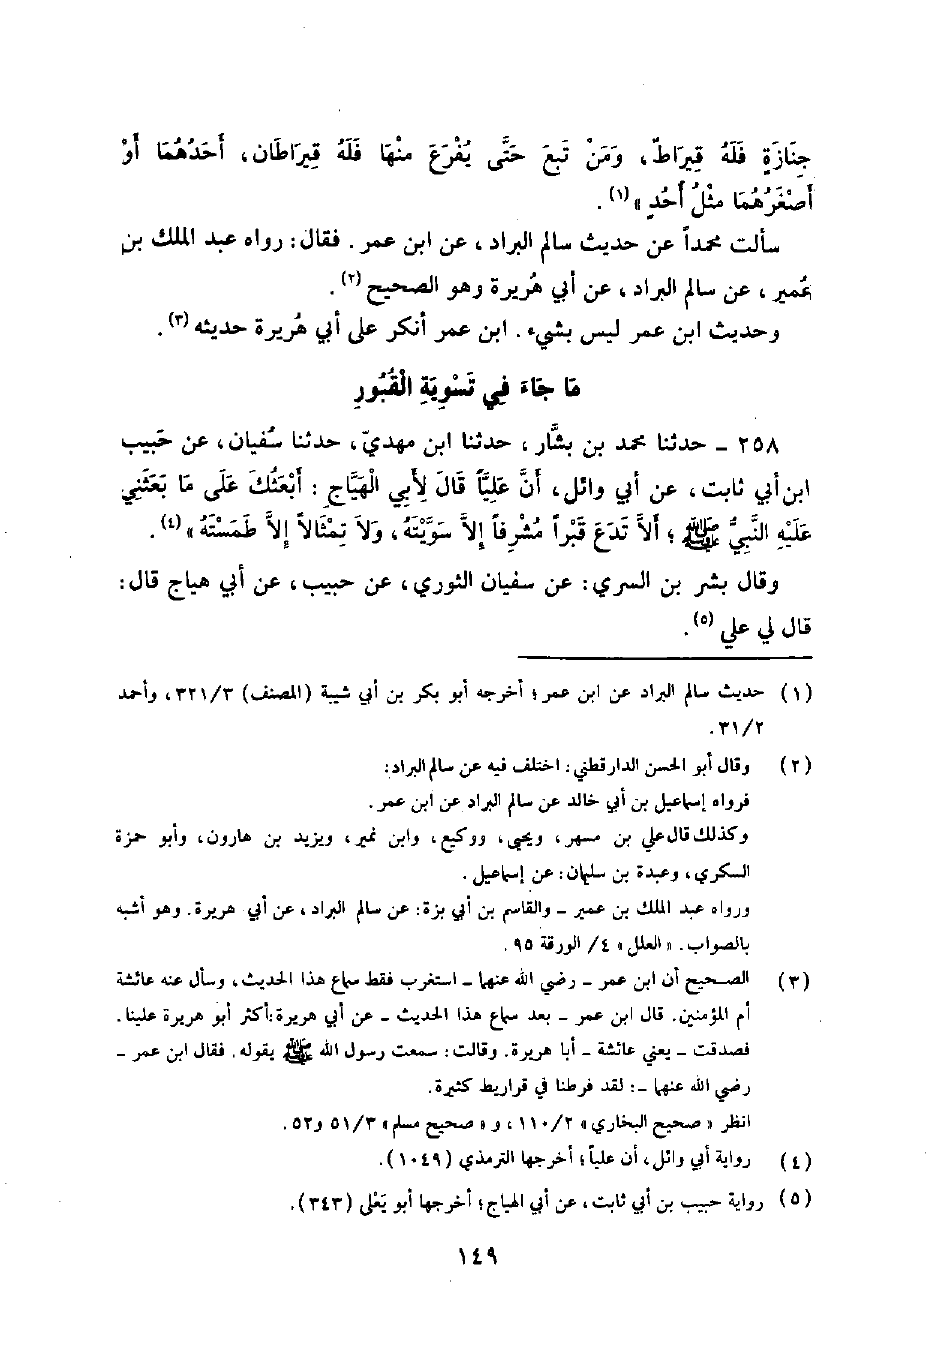 جِنَازَةٍ فَلَهُ قِيرَاطٌ، وَمَنْ تَبِعَ حَتَّى يُفْرَغَ مِنْهَا فَلَهُ قِيرَاطَانِ، أَحَدُهُمَا أَوْ
أَصْغَرُهُمَا مِثْلُ أُحُدٍ »(١).
سألت محمداً عن حديث سالم البراد، عن ابن عمر. فقال: رواه عبد الملك بن
عُمير، عن سالم البراد، عن أبي هُريرة وهو الصحيح(٢).
وحديث ابن عمر ليس بشيء. ابن عمر أنكر على أبي هُريرة حديثه(٣).
مَا جَاءَ فِي تَسْوِيَةِ الْقُبُورِ
٢٥٨ ــ حدثنا محمد بن بشَّار، حدثنا ابن مهديّ، حدثنا سُفيان، عن حَبيب
ابن أبي ثابت، عن أبي وائل، أَنَّ عَلِيَّاً قَالَ لِأَبِي الْهَيَّاجِ: أَبْعَثُكَ عَلَى مَا بَعَثَنِي
عَلَيْهِ النَّبِيُّ ﷺ؛ أَلاَّ تَدَعَ قَبْراً مُشْرِفاً إِلاَّ سَوَّيْتَهُ، وَلاَ تِمْثَالاً إِلاَّ طَمَسْتَهُ»(٤).
وقال بشر بن السري: عن سفيان الثوري، عن حبيب، عن أبي هياج قال:
قال لي علي(٥).
(١) حديث سالم البراد عن ابن عمر؛ أخرجه أبو بكر بن أبي شيبة (المصنف) ٣٢١/٣، وأحمد
٣١/٢.
(٢) وقال أبو الحسن الدارقطني: اختلف فيه عن سالم البراد:
فرواه إسماعيل بن أبي خالد عن سالم البراد عن ابن عمر.
وكذلك قال علي بن مسهر، ويحيى، ووكيع، وابن نمير، ويزيد بن هارون، وأبو حمزة
السكري، وعبدة بن سليمان: عن إسماعيل.
ورواه عبد الملك بن عمير ــ والقاسم بن أبي بزة: عن سالم البراد، عن أبي هريرة. وهو أشبه
بالصواب. «العلل» ٤/ الورقة ٩٥.
(٣) الصحيح أن ابن عمر ــ رضي الله عنهما ــ استغرب فقط سماع هذا الحديث، وسأل عنه عائشة
أم المؤمنين. قال ابن عمر ــ بعد سماع هذا الحديث ــ عن أبي هريرة: أكثر أبو هريرة علينا.
فصدقت ــ يعني عائشة ــ أبا هريرة. وقالت: سمعت رسول الله ﷺ يقوله. فقال ابن عمر ــ
رضي الله عنهما ــ: لقد فرطنا في قراريط كثيرة.
انظر «صحيح البخاري» ١١٠/٢، و«صحيح مسلم» ٥١/٣ و٥٢.
(٤) رواية أبي وائل، أن علياً؛ أخرجها الترمذي (١٠٤٩).
(٥) رواية حبيب بن أبي ثابت، عن أبي الهياج؛ أخرجها أبو يَعْلى (٣٤٣).
١٤٩